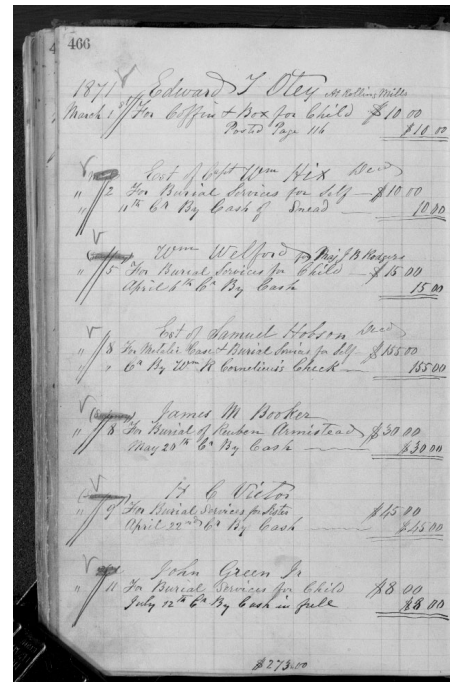 466
1871 Edward T Otey At Rolling Mills
March 1st For Coffin & Box for Child $10.00
Posted Page 116 $10.00
Est of Capt Wm Hix Decd
" 2 For Burial Services for Self $10.00
" " 11th Cr By Cash of Snead 10.00
Wm Welford for Maj J B Rodgers
" 5 For Burial Services for Child $15.00
April 6th Cr By Cash 15.00
Est of Samuel Hobson Decd
" 8 For Metalic Case & Burial Services for Self $155.00
" " Cr By Wm R Cornelius's Check 155.00
James M Booker
" 8 For Burial of Reuben Armistead $30.00
May 20th Cr By Cash $30.00
H C Victor
" 9 For Burial Services for Sister $45.00
April 22nd Cr By Cash $45.00
John Green Jr
" 11 For Burial Services for Child $8.00
July 12th Cr By Cash in full $8.00
$273.00